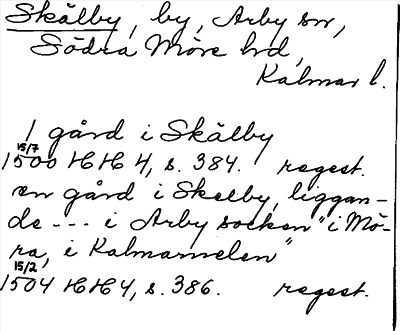 Skälby, by, Arby sn,
Södra Möre hd,
Kalmar l.
1 gård i Skälby
15/7
1500 HH 4, s. 384. regest.
en gård i Skelby, liggan-
de --- i Arby socken "i Mö-
ra, i Kalmarnelen"
15/2
1504 HH 4, s. 386. regest.